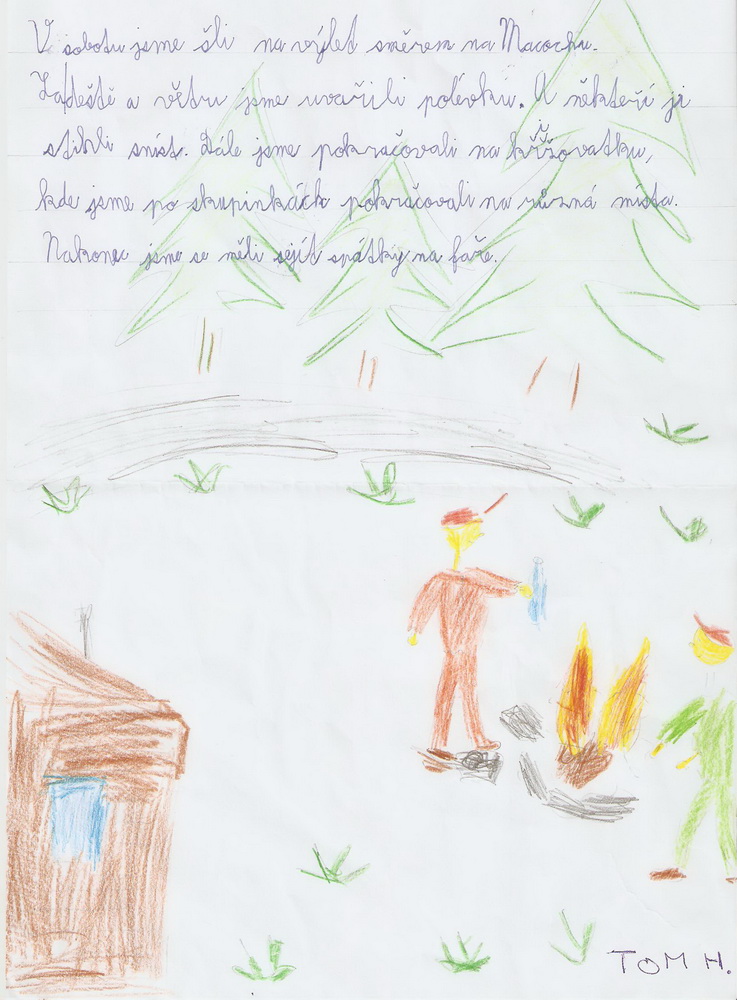 V sobotu jsme šli na výlet směrem na Macochu.
Za deště a větru jsme uvařili polévku. A někteří ji
stihli sníst. Dále jsme pokračovali na křižovatku,
kde jsme po skupinkách pokračovali na různá místa.
Nakonec jsme se měli sejít spátky na faře.
TOM H.